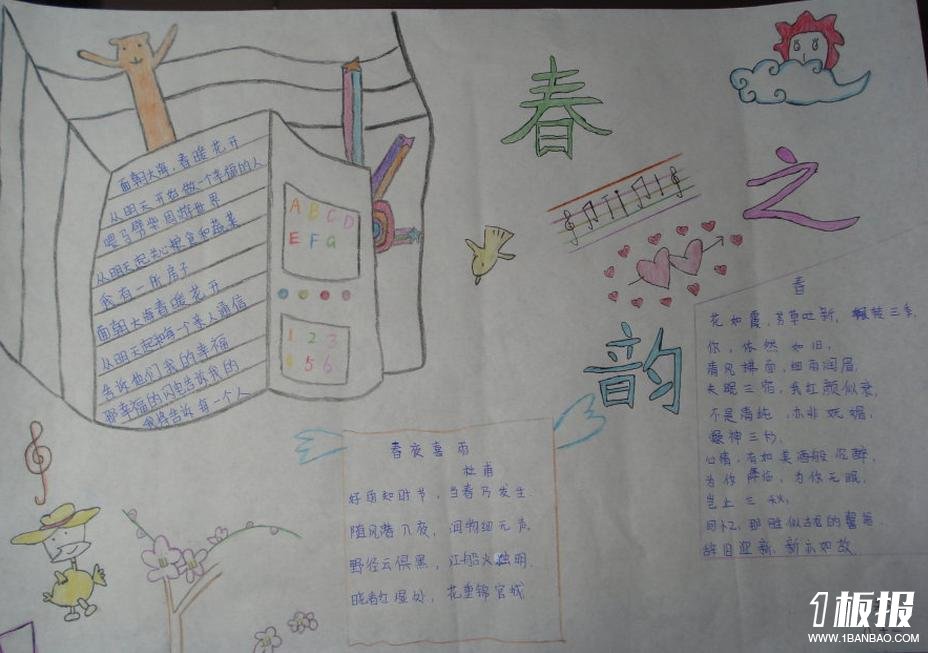 面朝大海，春暖花开
从明天开始做一个幸福的人
喂马劈柴周游世界
从明天起关心粮食和蔬菜
我有一所房子
面朝大海春暖花开
从明天起和每一个亲人通信
告诉他们我的幸福
那幸福的闪电告诉我的
我将告诉每一个人
A B C D
E F G
1 2 3
4 5 6
春
之
韵
春夜喜雨
杜甫
好雨知时节，当春乃发生.
随风潜入夜，润物细无声.
野径云俱黑，江船火独明.
晓看红湿处，花重锦官城.
春
花如霞，芳草吐新，辗转三季，
你，依然如旧，
清风拂面，细雨润眉，
失眠三宿，我红颜似衰，
不是清纯，亦非妩媚，
凝神三秒，
心情，有如美酒般沉醉，
为你降临，为你无眠，
岂止三秋，
回忆，那胜似的
辞旧迎新，新亦如故.
1板报
WWW.1BANBAO.COM